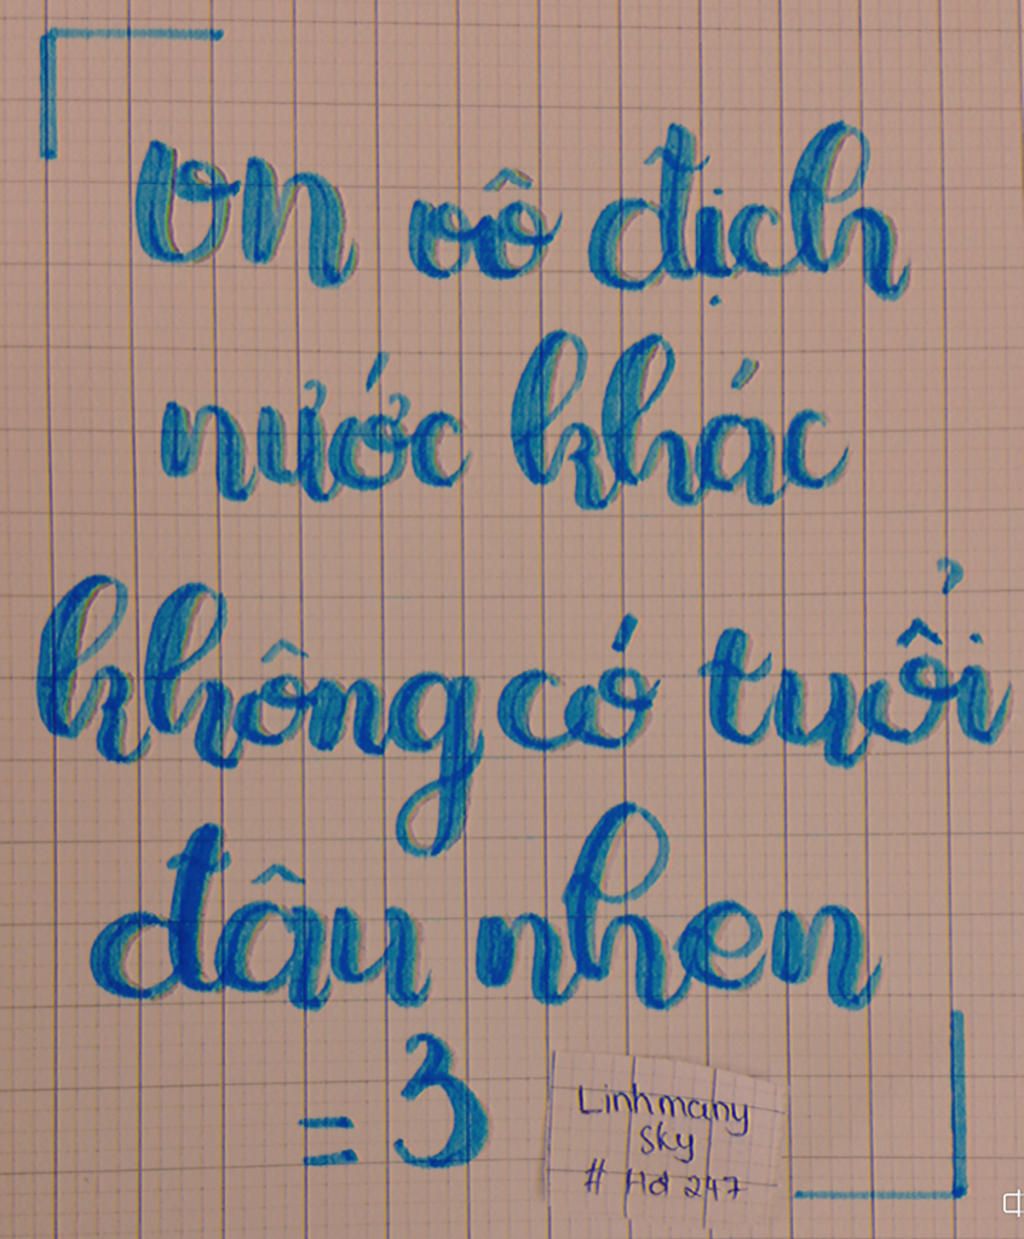 VN vô địch
nước khác
không có tuổi
đâu nhen
= 3
Linhmany
Sky
# Hd 247